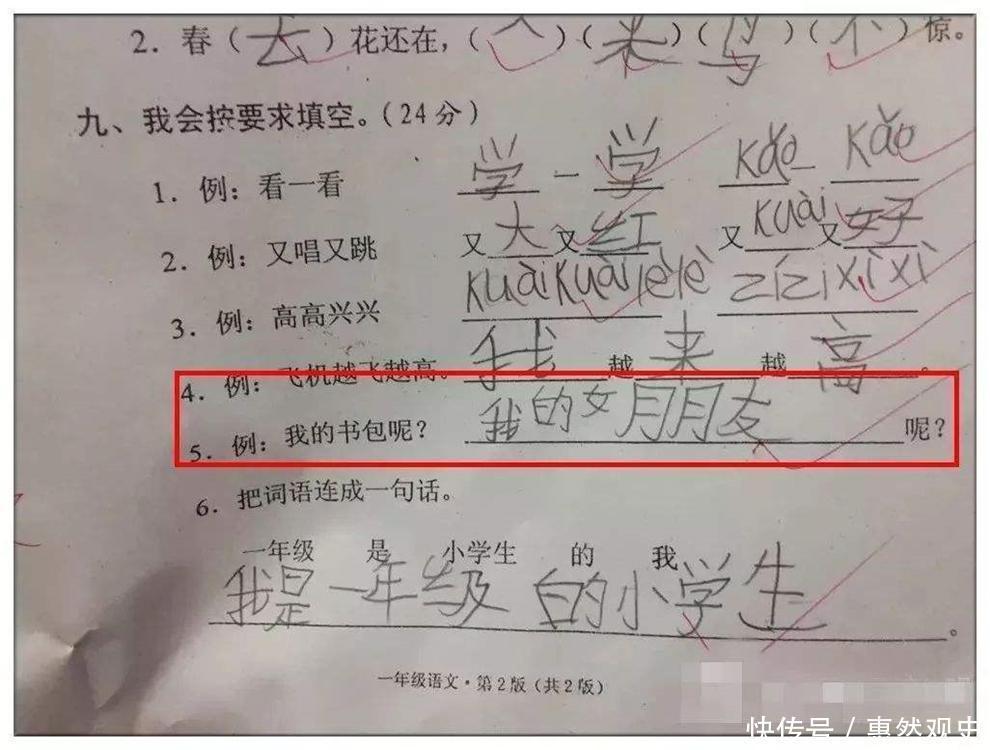 2. 春（去）花还在，（人）（来）（鸟）（不）惊。
九、我会按要求填空。（24分）
1. 例：看一看 学 - 学 kǎo - kǎo
2. 例：又唱又跳 又大又红 又kuài又好
3. 例：高高兴兴 kuàikuàilèlè zǐzǐxìxì
4. 例：飞机越飞越高。 我越来越高。
5. 例：我的书包呢？ 我的女朋友呢？
6. 把词语连成一句话。
一年级 是 小学生 的 我
我是一年级的小学生。
一年级语文·第2版（共2版）
快传号 / 惠然观史